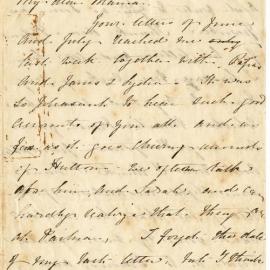 My dear Mama.
Your letters of June
and July reached me only
last week together with Papa's
and James & Lydia's. It was
so pleasant to hear such good
accounts of you all and as
far as it goes cheering accounts
of Hutton. We often talk
of him and Sarah, and can
hardly realize that they are
at
I forget the date
of my last letter, but I think